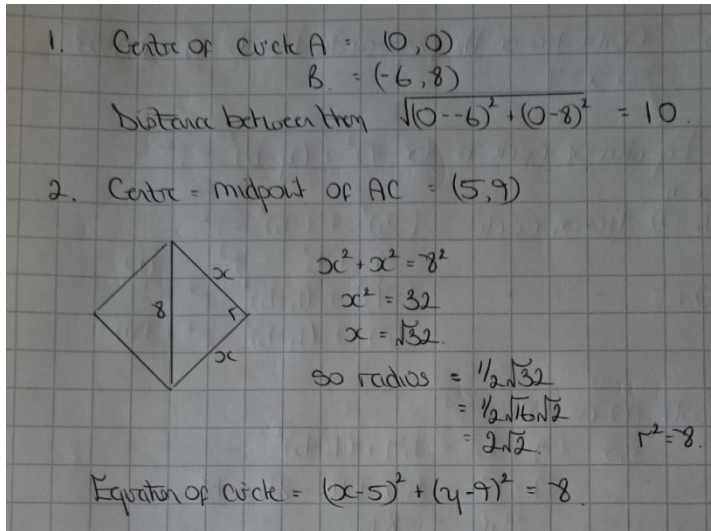 1. Centre of circle A = (0,0)
B = (-6,8)
Distance between them √(0--6)² + (0-8)² = 10.
2. Centre = midpoint of AC = (5,9)
x
8
x
x² + x² = 8²
x² = 32
x = √32.
so radius = 1/2√32
= 1/2√16√2
= 2√2. r² = 8.
Equation of circle = (x-5)² + (y-9)² = 8.